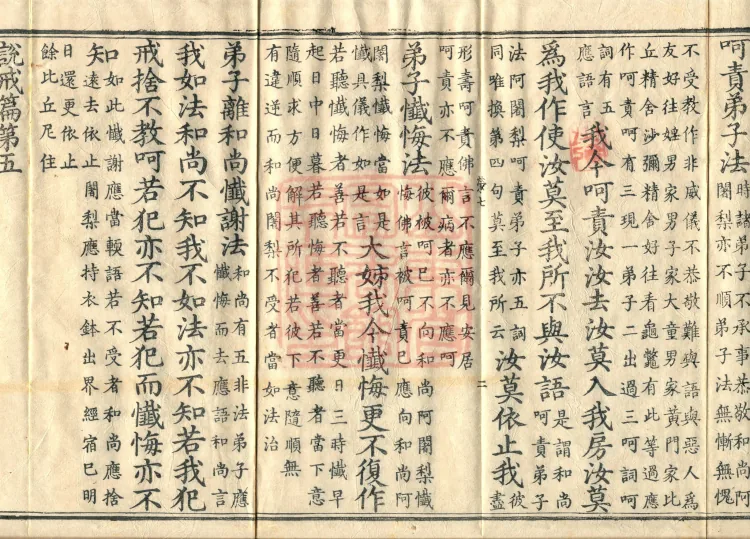 呵責弟子法
時諸弟子不承事恭敬和尚阿
闍梨亦不順弟子法無慚無愧
不受教作非威儀不恭敬難與語與惡人為
友好往婬男家男子家大童男家黃門家比
丘精舍沙彌精舍好往看龜鼈有此等過應
作呵責呵有三現一弟子二出過三呵詞呵
詞有五
應語言
我今呵責汝汝去汝莫入我房汝莫
為我作使汝莫至我所不與汝語
是謂和尚
呵責弟子
法阿闍梨呵責弟子亦五詞
同唯換第四句莫至我所云
汝莫依止我
彼
盡
七
二
形壽呵責佛言不應爾見安居
呵責亦不應爾病者亦不應呵
弟子懺悔法
彼被呵已不向和尚阿闍梨懺
悔佛言被呵責已應向和尚阿
闍梨懺悔當如是
懺具儀作如是言
大姊我今懺悔更不復作
若聽懺悔者善若不聽者當更日三時懺早
起日中日暮若聽悔者善若不聽者當下意
隨順求方便解其所犯若彼下意隨順無
有違逆而和尚闍梨不受者當如法治
弟子離和尚懺謝法
和尚有五非法弟子應
懺悔而去應語和尚言
我如法和尚不知我不如法亦不知若我犯
戒捨不教呵若犯亦不知若犯而懺悔亦不
知
口如此懺謝應當輭語若不受者和尚應捨
遠去依止闍梨應持衣鉢出界經宿已明
日還更依止
餘比丘尼住
說戒篇第五